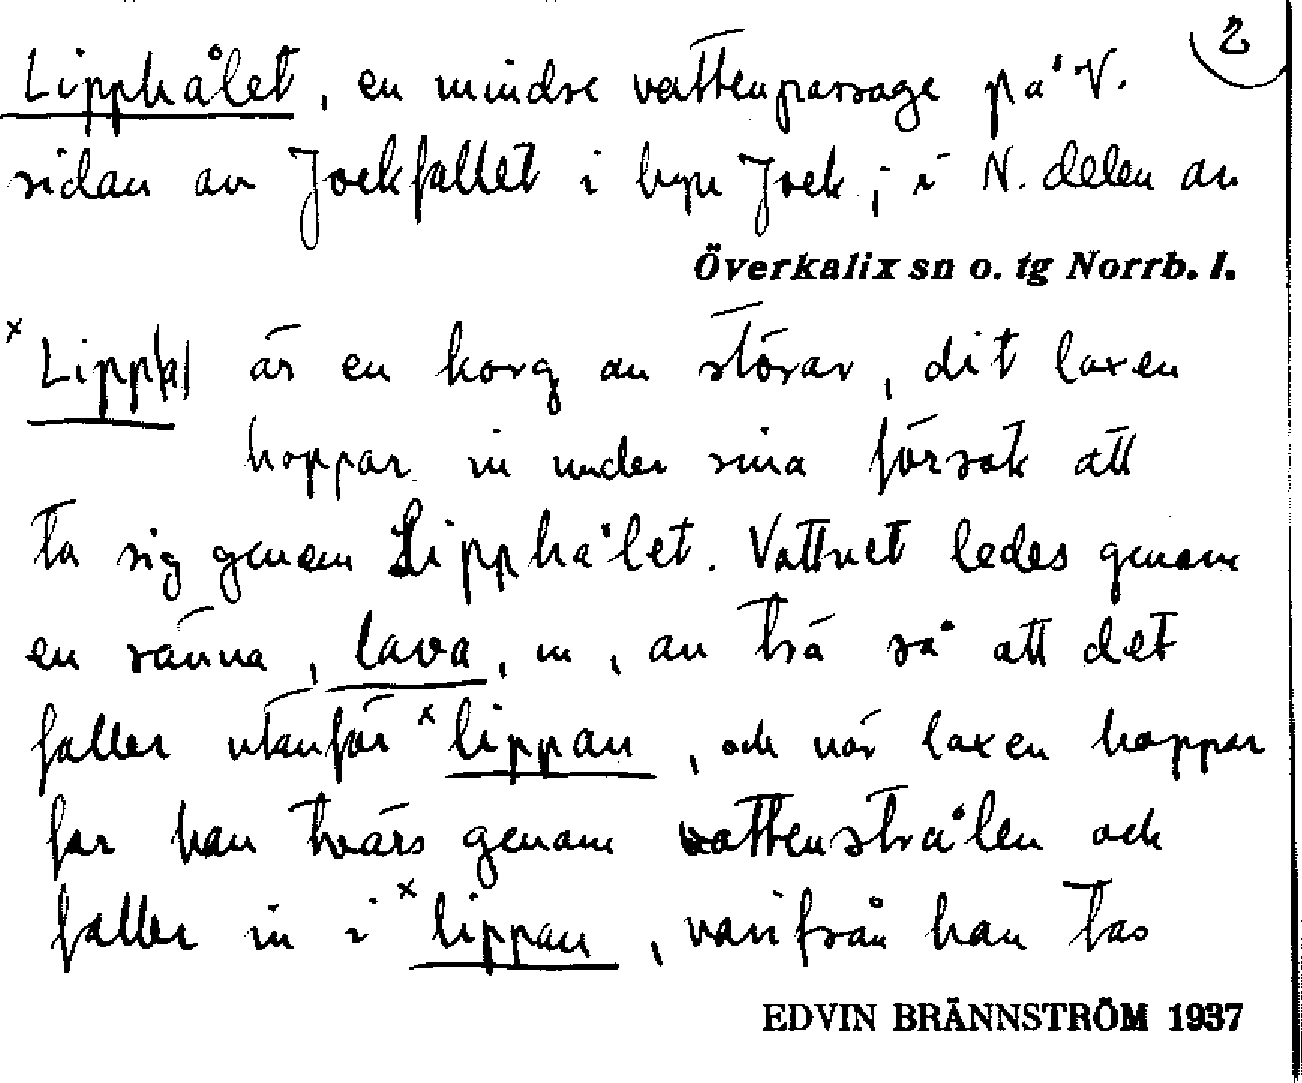 2
Lipphålet, en mindre vattenpassage på V.
sidan av Jockfallet i byn Jock, i N. delen av
Överkalix sn o. tg Norrb. l.
x Lipp(a) är en korg av störar, dit laxen
hoppar in under sina försök att
ta sig genom Lipphålet. Vattnet ledes genom
en ränna, lava, m, av trä så att det
faller utanför x lippan, och när laxen hoppar
far han tvärs genom vattenstrålen och
faller in i x lippan, varifrån han tas
EDVIN BRÄNNSTRÖM 1937